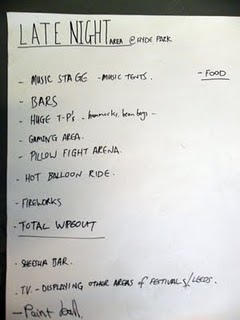 LATE NIGHT AREA @ HYDE PARK
- MUSIC STAGE - MUSIC TENTS.
- FOOD
- BARS
- HUGE T-P's - hammocks, bean bags -
- GAMING AREA.
- PILLOW FIGHT ARENA.
- HOT BALLOON RIDE.
- FIREWORKS
- TOTAL WIPEOUT
- SHEESHA BAR.
- TV - DISPLAYING OTHER AREAS of FESTIVALS/LEEDS.
- Paint ball.